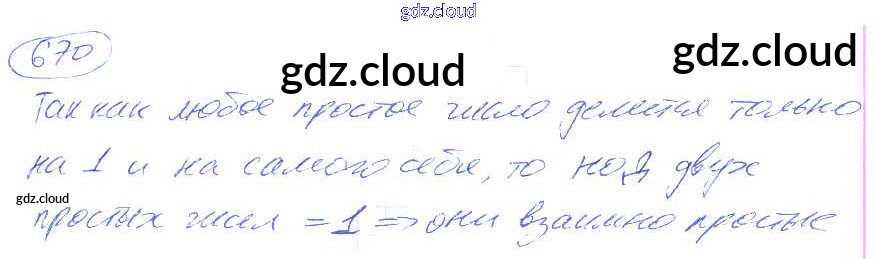 gdz.cloud
670
gdz.cloud
gdz.cloud
Так как любое простое число делится только
на 1 и на самого себя, то НОД двух
gdz.cloud
простых чисел = 1 => они взаимно простые